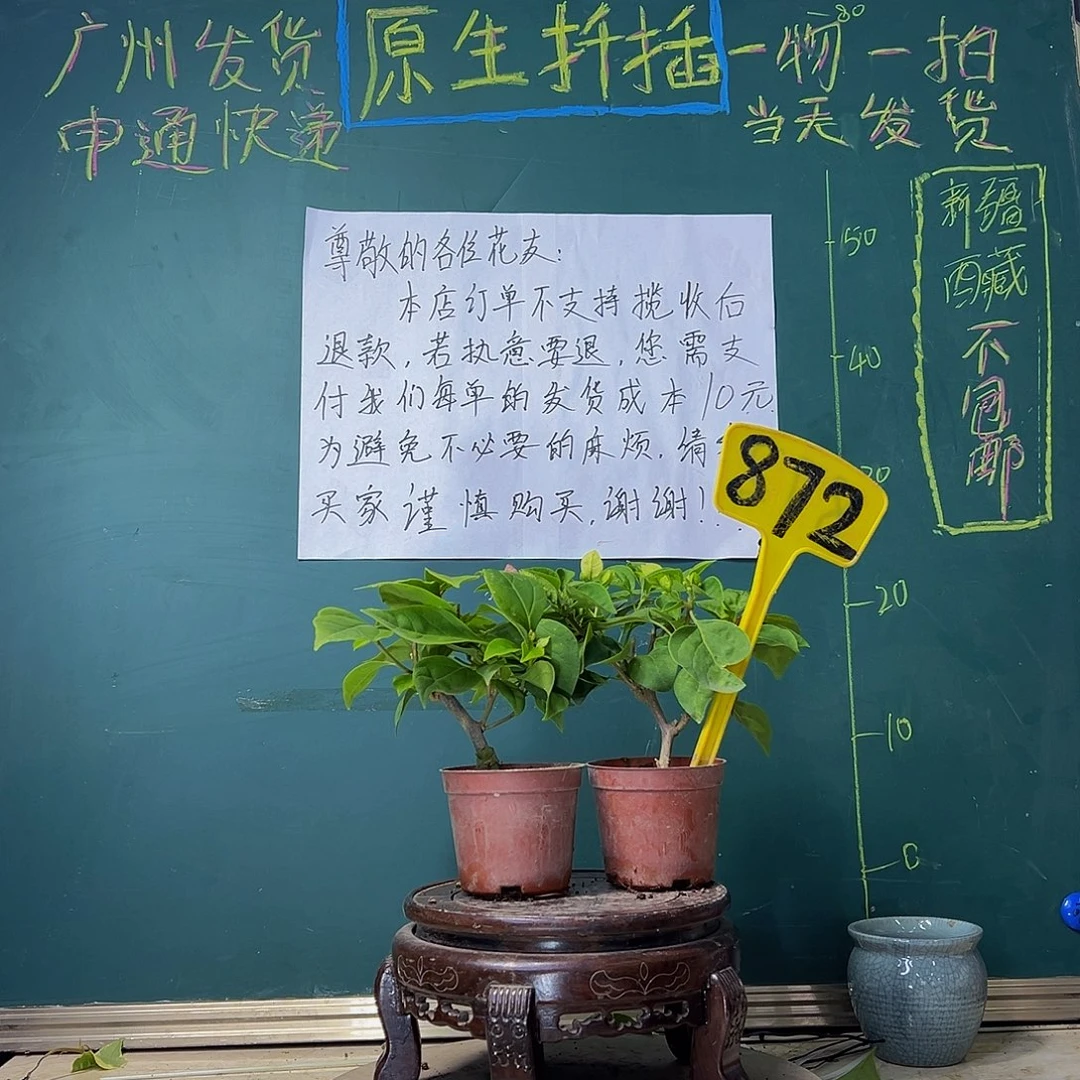 广州发货
申通快递
原生扦插
一物一拍
当天发货
新疆
西藏
不包邮
尊敬的各位花友:
本店订单不支持揽收后
退款,若执意要退,您需支
付我们每单的发货成本10元.
为避免不必要的麻烦.请
买家谨慎购买,谢谢!
872
80
50
40
20
10
0